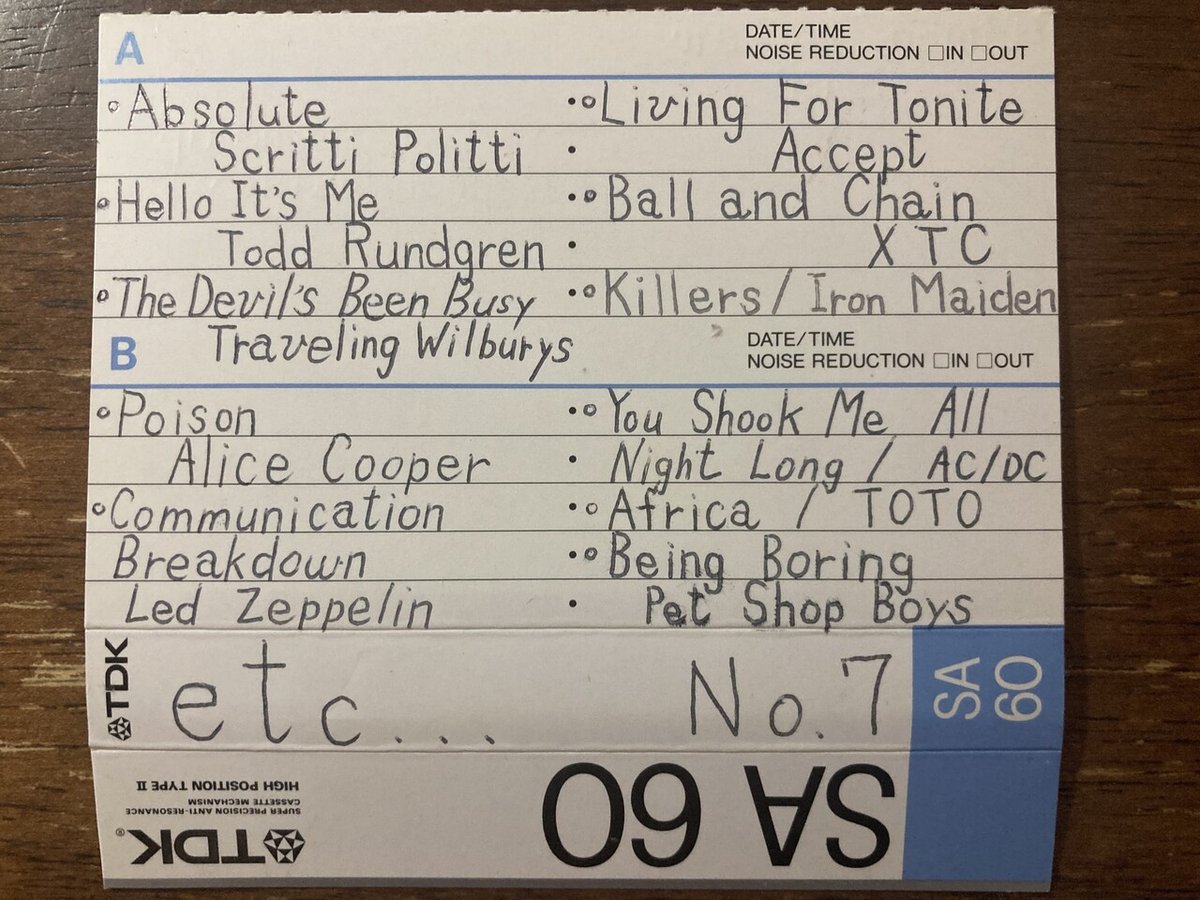 A
DATE/TIME
NOISE REDUCTION □IN □OUT
Absolute
Scritti Politti
Hello It's Me
Todd Rundgren
The Devil's Been Busy
Traveling Wilburys
Living For Tonite
Accept
Ball and Chain
XTC
Killers / Iron Maiden
B
DATE/TIME
NOISE REDUCTION □IN □OUT
Poison
Alice Cooper
Communication
Breakdown
Led Zeppelin
You Shook Me All
Night Long / AC/DC
Africa / TOTO
Being Boring
Pet Shop Boys
TDK
etc...
No.7
SA
60
SA 60
TDK®
SUPER PRECISION ANTI-RESONANCE
CASSETTE MECHANISM
HIGH POSITION TYPE II